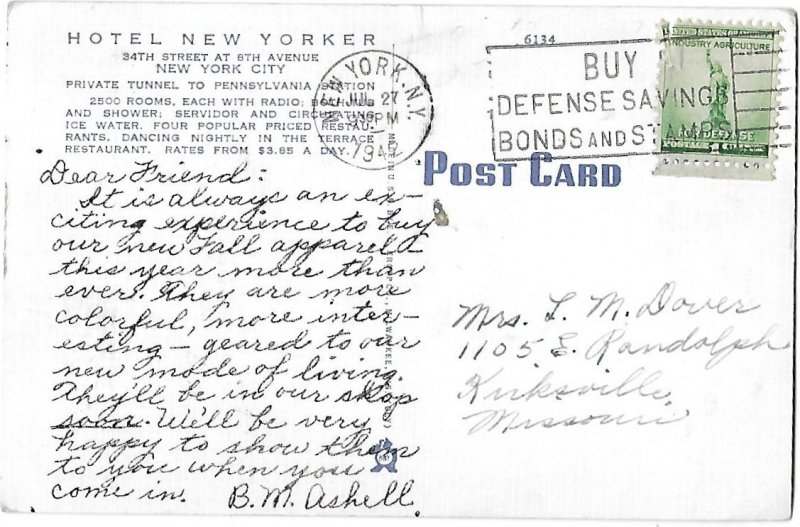 HOTEL NEW YORKER
34TH STREET AT 8TH AVENUE
NEW YORK CITY
PRIVATE TUNNEL TO PENNSYLVANIA STATION
2500 ROOMS, EACH WITH RADIO; BOTH TUB
AND SHOWER; SERVIDOR AND CIRCULATING
ICE WATER. FOUR POPULAR PRICED RESTAU-
RANTS. DANCING NIGHTLY IN THE TERRACE
RESTAURANT. RATES FROM $3.85 A DAY.
NEW YORK, N.Y.
JUL 27
PM
194
6134
BUY
DEFENSE SAVINGS
BONDS AND STAMPS
UNITED STATES OF AMERICA
INDUSTRY AGRICULTURE
FOR DEFENSE
POSTAGE
POST CARD
Dear Friend:
It is always an ex-
citing experience to buy
our new Fall apparel -
this year more than
ever. They are more
colorful, more inter-
esting - geared to our
new mode of living.
They'll be in our shop
soon. We'll be very
happy to show them
to you when you
come in. B. M. Ashell
Mrs. L. M. Dover
1105 E. Randolph
Kirksville,
Missouri